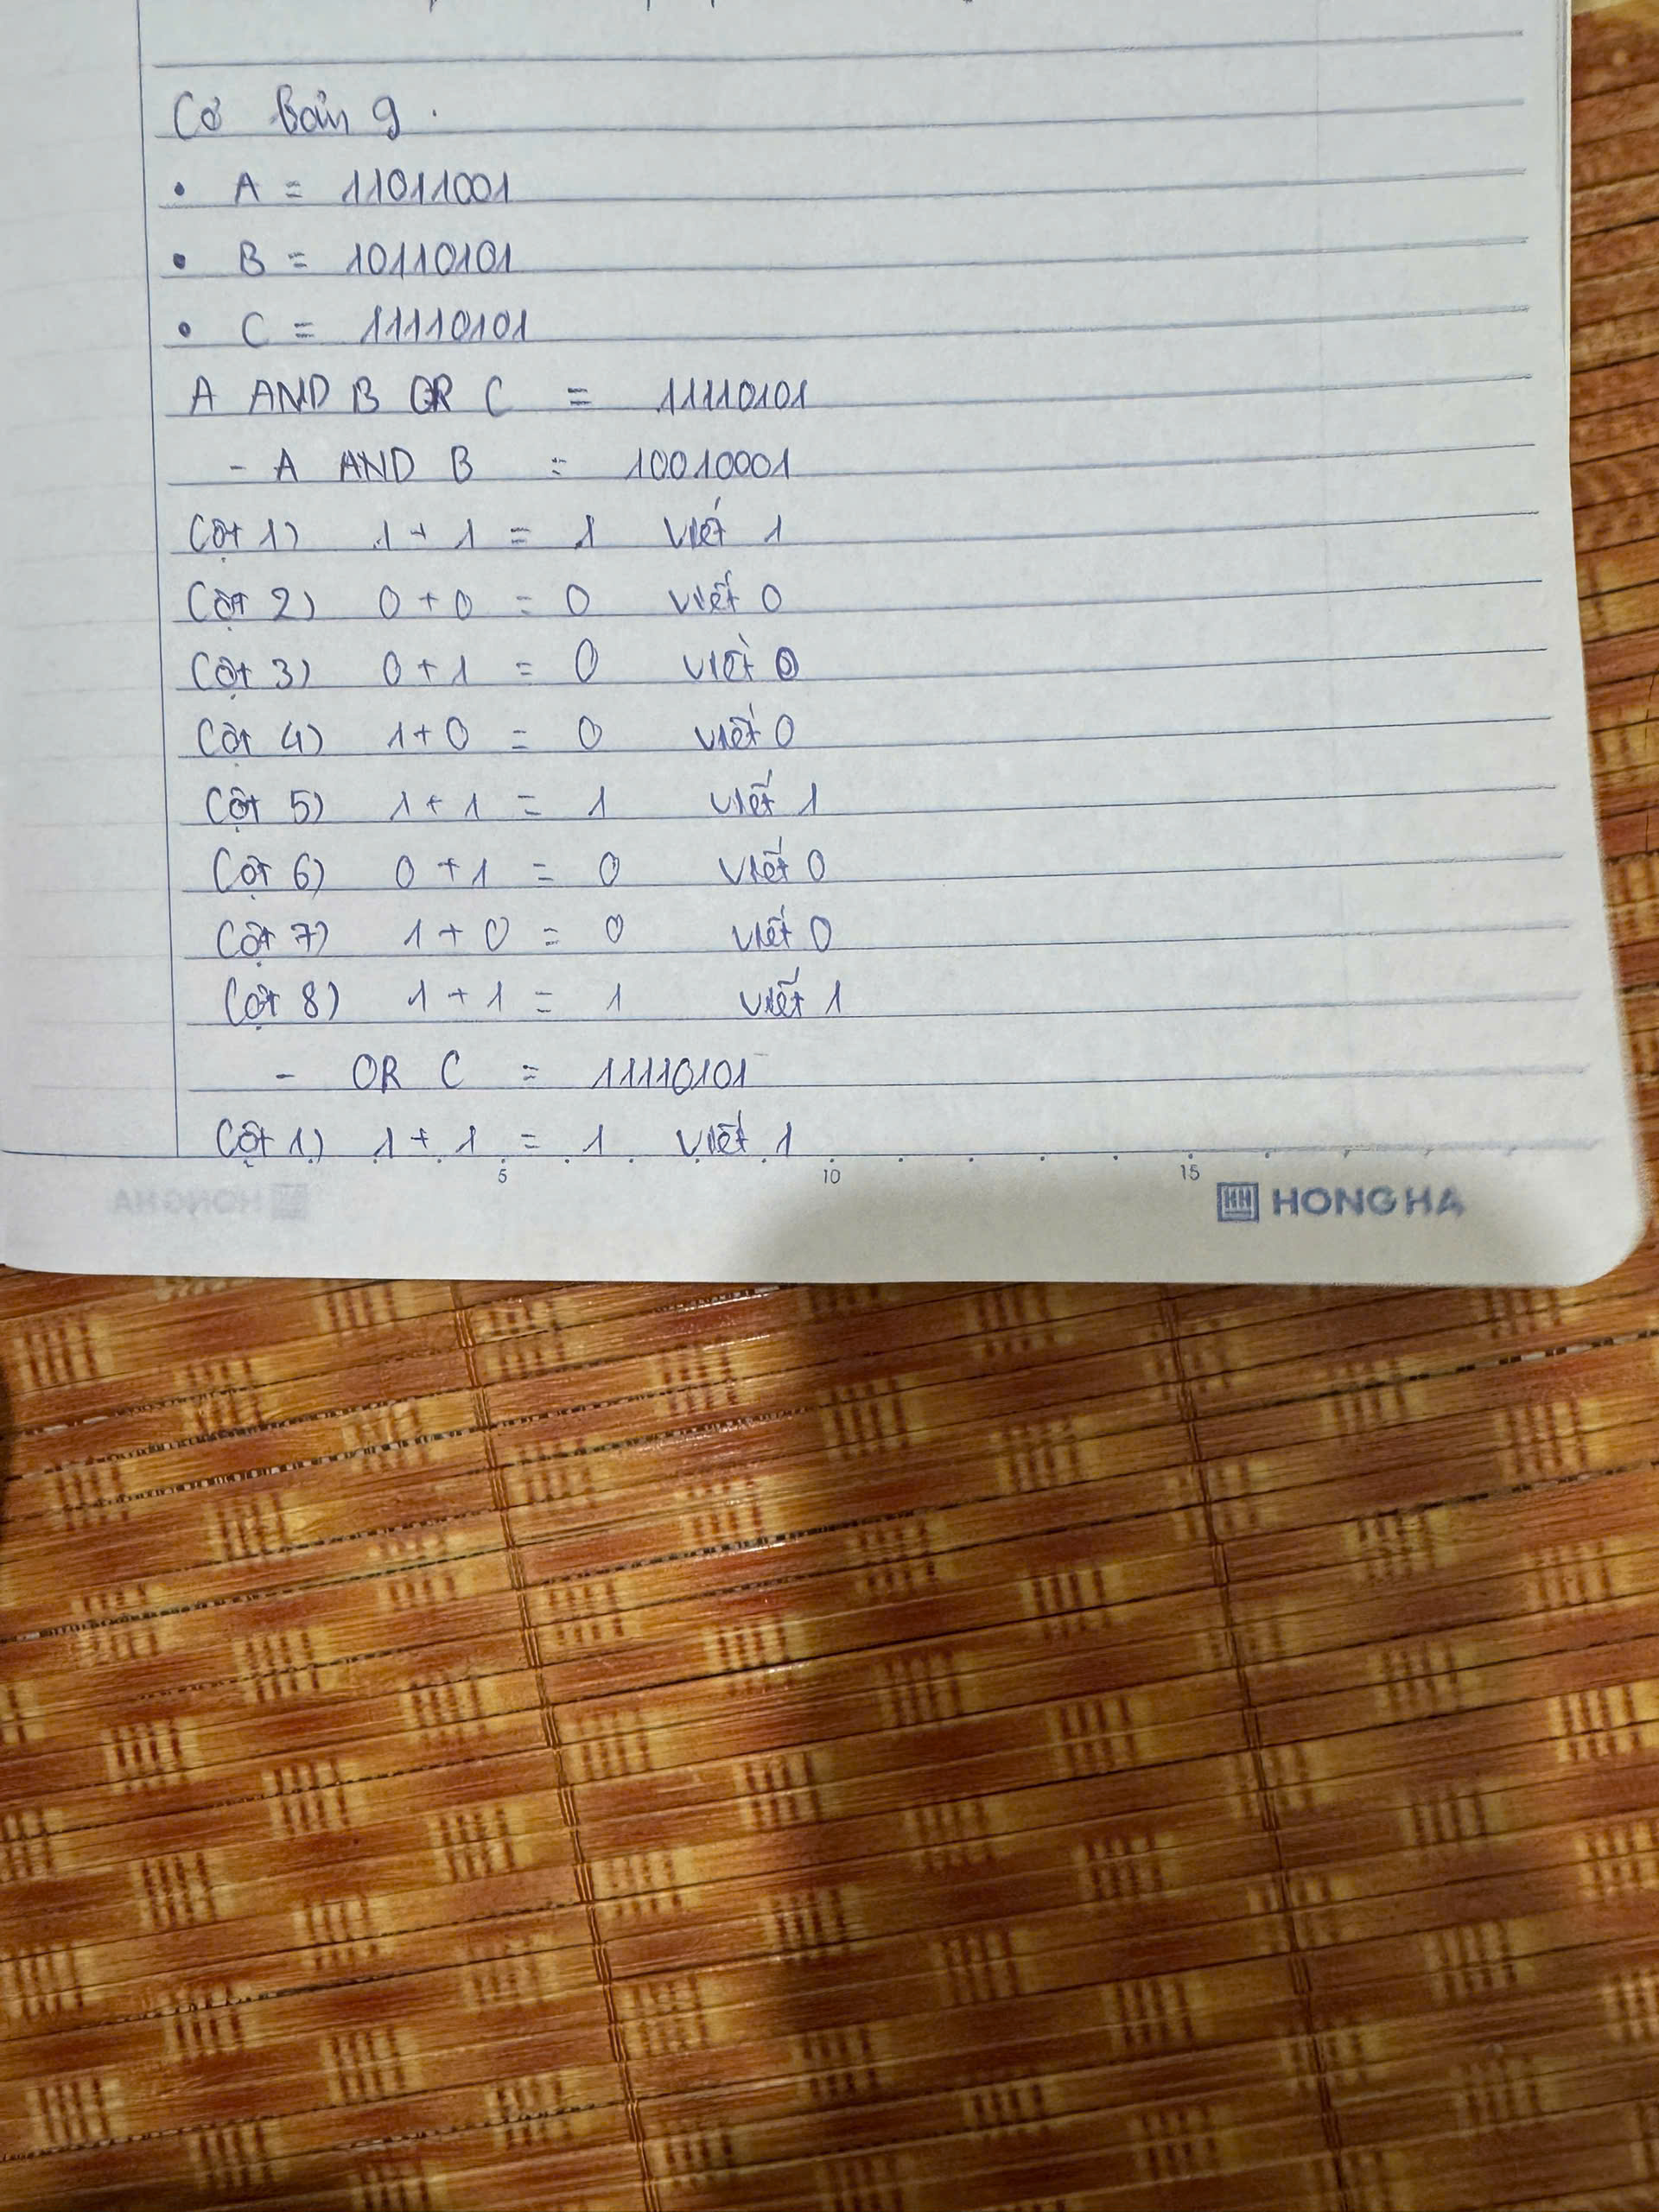 Cơ bản 9.
• A = 11011001
• B = 10110101
• C = 11110101
A AND B OR C = 11110101
- A AND B = 10010001
Cột 1) 1 + 1 = 1 viết 1
Cột 2) 0 + 0 = 0 viết 0
Cột 3) 0 + 1 = 0 viết 0
Cột 4) 1 + 0 = 0 viết 0
Cột 5) 1 + 1 = 1 viết 1
Cột 6) 0 + 1 = 0 viết 0
Cột 7) 1 + 0 = 0 viết 0
Cột 8) 1 + 1 = 1 viết 1
- OR C = 11110101
Cột 1) 1 + 1 = 1 viết 1
5 10 15
HONG HA